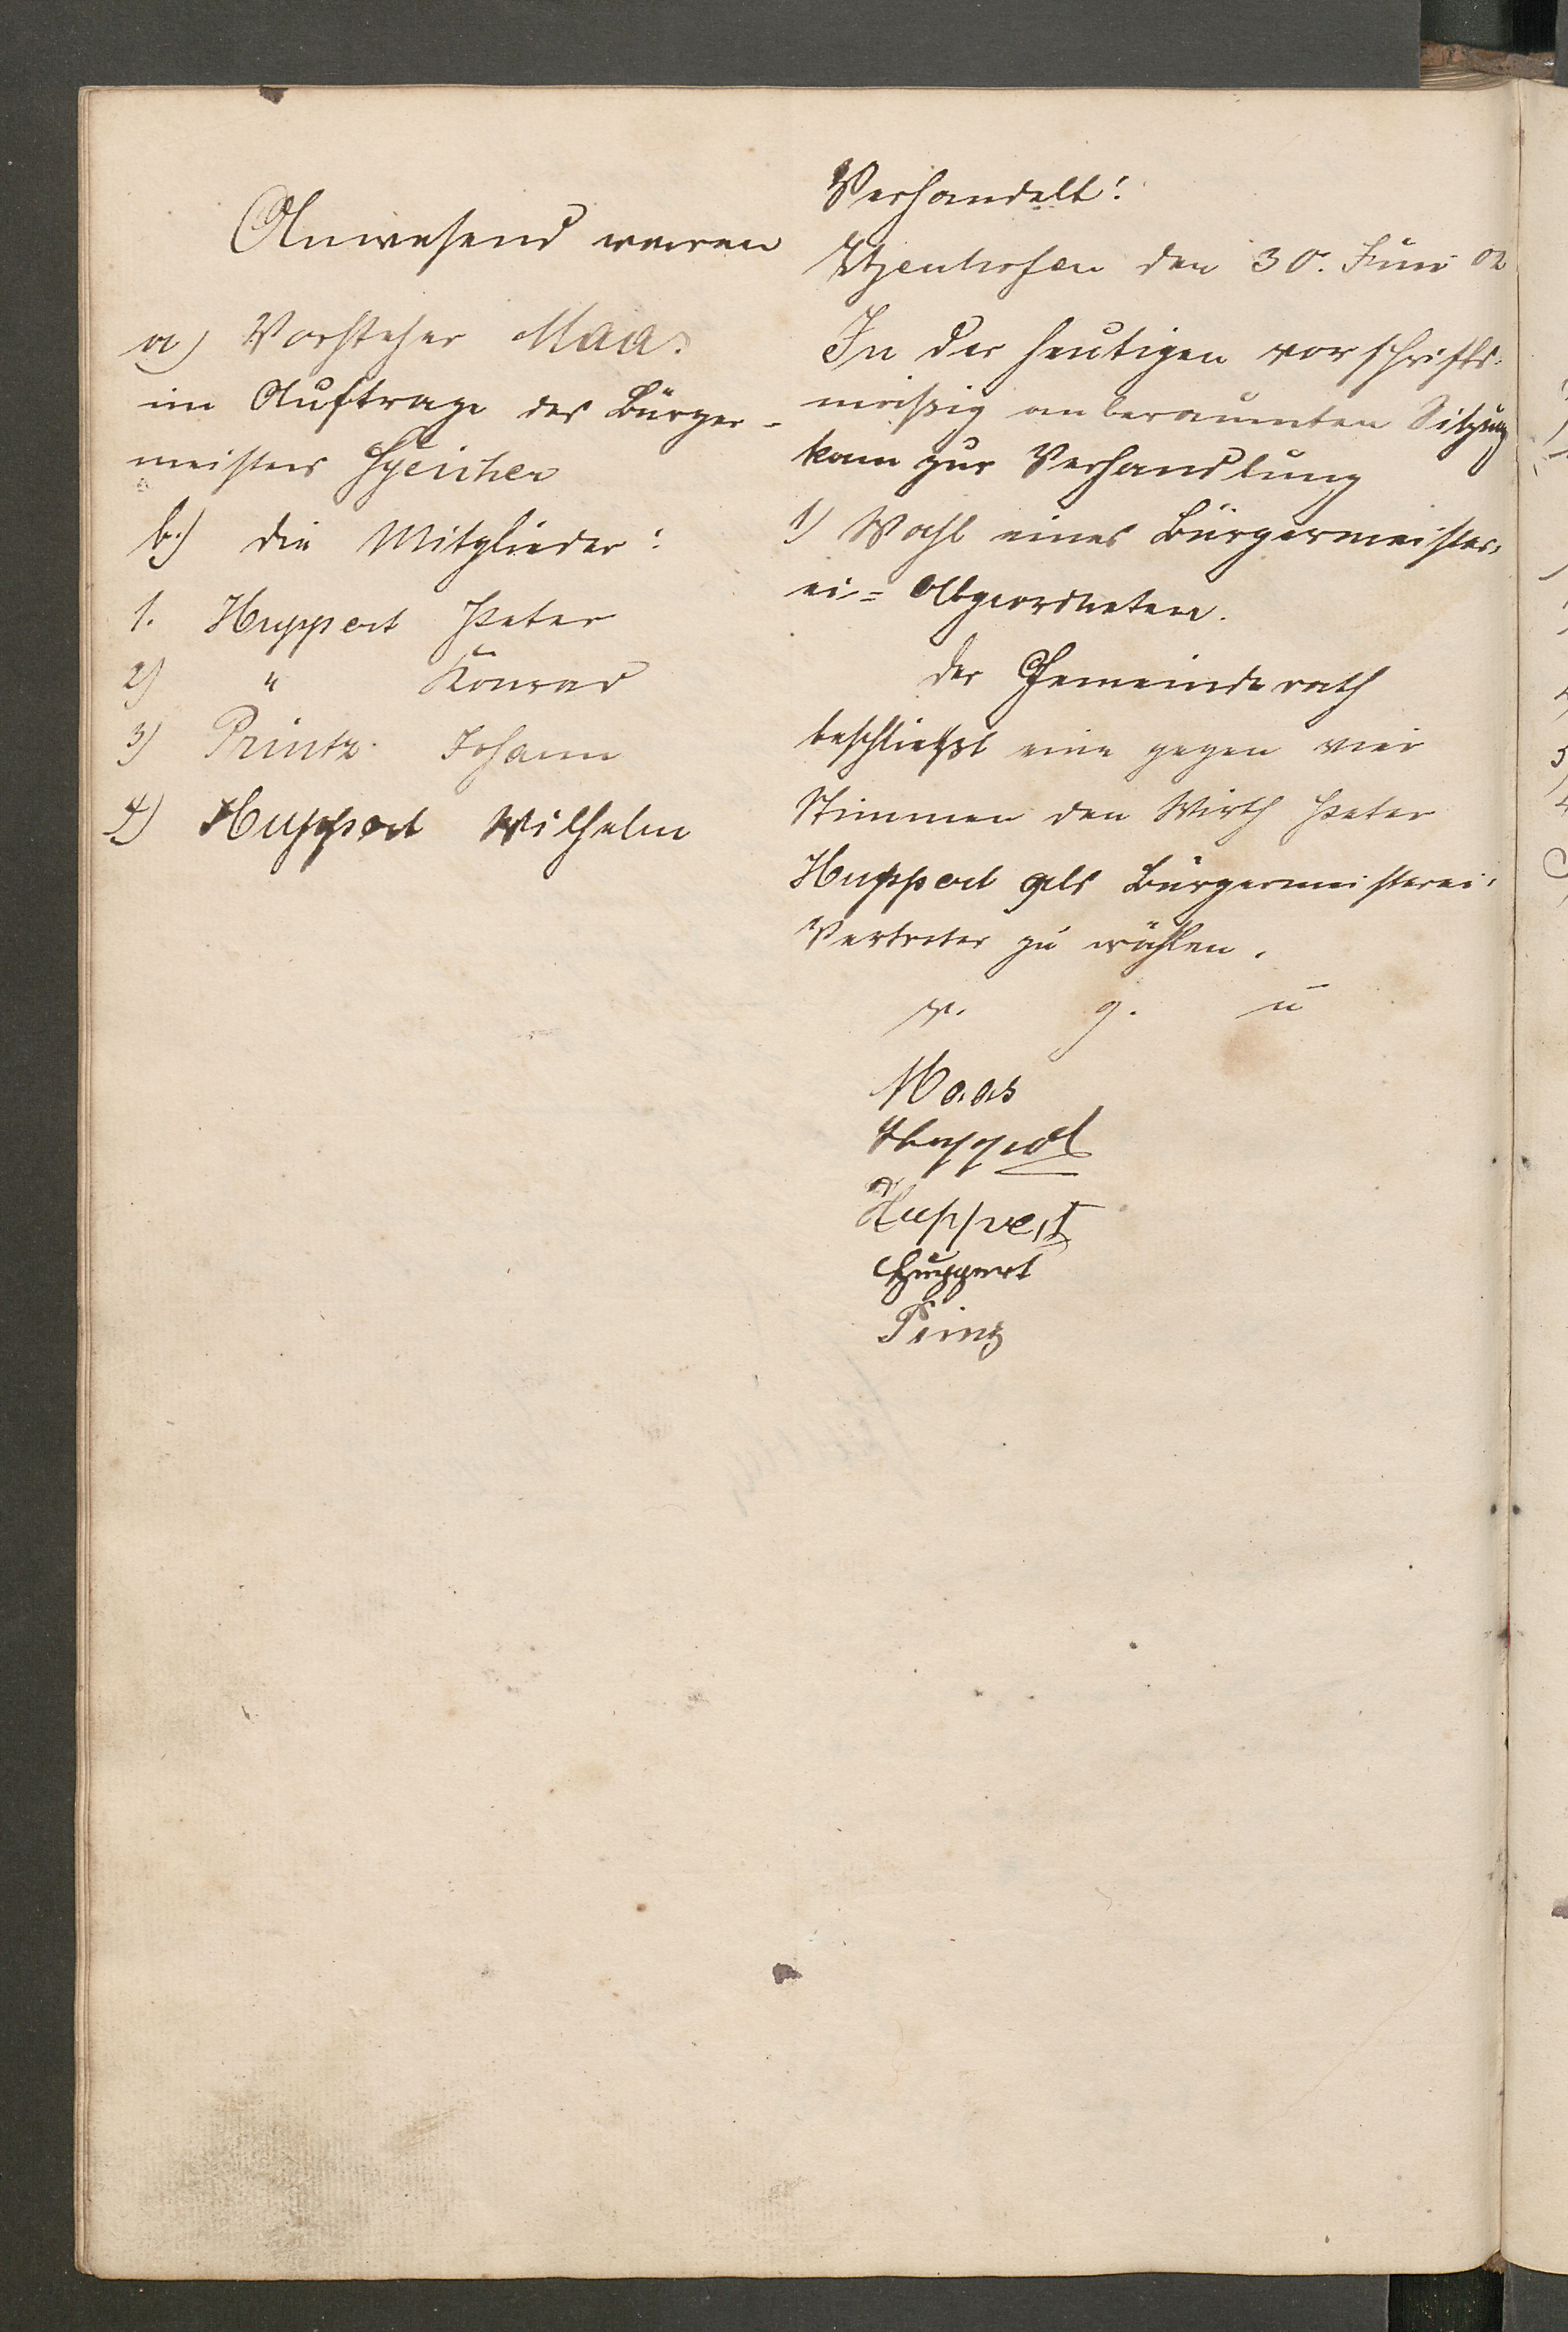 Anwesend waren
a) Vorsteher Maas
im Auftrage des Bürger-
meisters Speicher
b.) die Mitglieder:
1. Huppert Peter
2) " Konrad
3) Printz Johann
4) Huppert Wilhelm
Verhandelt!
Itzenhofen den 30. Juni 02
In der heutigen vorschrifts-
mäßig anberaumten Sitzung
kam zur Verhandlung
1) Wahl eines Bürgermeister-
ei= Abgeordneten.
Der Gemeinderath
beschließt eine gegen vier
Stimmen den Wirth Peter
Huppert als Bürgermeisterei-
Vertreter zu wählen.
v. g. u
Maas
Huppert
Huppert
Huppert
Prinz